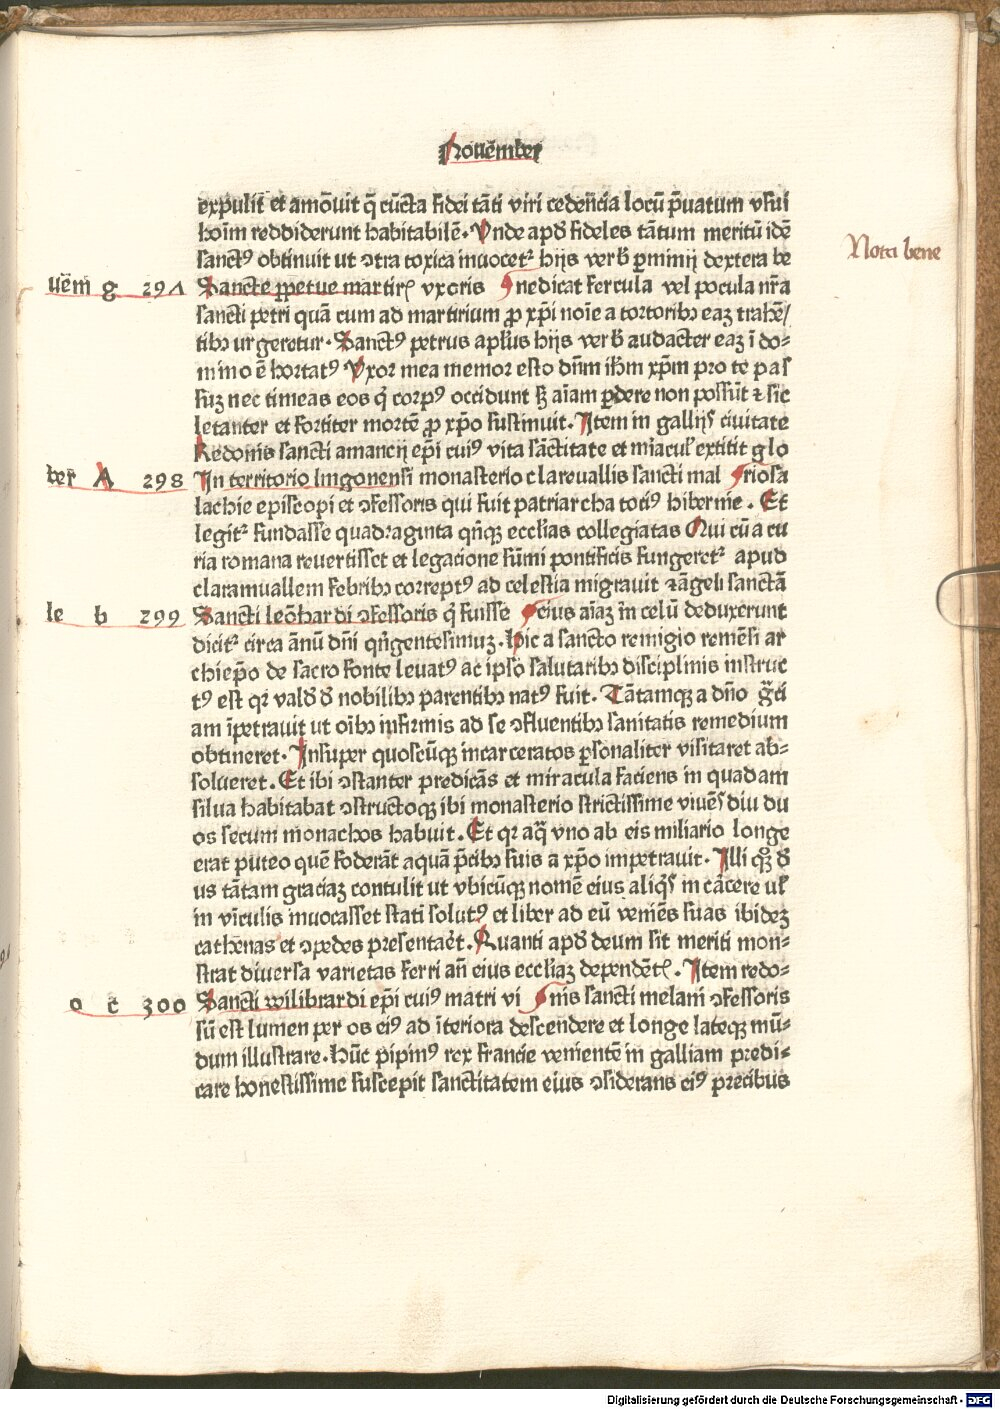 Nouēmber
expulit et amōuit q̄ cūcta fidei tāti viri cedēncia locū p̄uatum vsui
hoīm reddiderunt habitabilē. Vnde apd̄ fideles tātum meritū idē
sanctꝰ obtinuit ut ɔtra toxica inuocetᷣ hijs verb̄ ꝑminij dextera be
Nota bene
uēm̄ g 297 Sancte ꝑpetue martirꝭ vxoris nedicat fercula vel pocula nr̄a
sancti petri quā cum ad martirium ꝓ xp̄i noīe a tortoribꝫ eaꝫ trahē/
tibꝫ urgeretur. Sanctꝰ petrus apl̄us hijs verb̄ audacter eaꝫ ī do⸗
mino ē hortatꝰ Vxor mea memor esto dn̄m ih̄m xp̄m pro te pas
suꝫ nec timeas eos q̇ corpꝰ occidunt sꝫ aīam ꝑdere non possūt ⁊ sic
letanter et fortiter mortē ꝓ xp̄o sustinuit. Item in gallijs ciuitate
Redonis sancti amancij ep̄i cuiꝰ vita sāctitate et miacul̓ extitit glo
ber̄ A 298 In territorio lingonensi monasterio clareuallis sancti mal riosa
lachie episcopi et ɔfessoris qui fuit patriarcha totiꝰ hibernie. Et
legitᷣ fundasse quadraginta qn̄qꝫ eccl̄ias collegiatas Qui cū a cu
ria romana reuertisset et legacione sūmi pontificis fungeretᷣ apud
claramuallem febribꝫ correptꝰ ad celestia migrauit ⁊ āgeli sanctā
le b 299 Sancti leōhardi ɔfessoris q̇ fuisse eius aīaꝫ in celū deduxerunt
dicitᷣ circa ānū dn̄i qn̄gentesimuꝫ. Hic a sancto remigio remēsi ar
chiep̄o de sacro fonte leuatꝰ ac ipso salutaribꝫ disciplinis instruc
tꝰ est qꝛ vald̄ d̄ nobilibꝫ parentibꝫ natꝰ fuit. Tātamqꝫ a dn̄o gr̄ti
am īpetrauit ut oībꝫ infirmis ad se ɔfluentibꝫ sanitatis remedium
obtineret. Insuper quoscūqꝫ incarceratos ꝑsonaliter visitaret ab⸗
solueret. Et ibi ɔstanter predicās et miracula faciens in quadam
silua habitabat ɔstructoqꝫ ibi monasterio strictissime viuēs diu du
os secum monachos habuit. Et qꝛ aq̄ vno ab eis miliario longe
erat puteo quē foderāt aquā p̄cibꝫ suis a xp̄o impetrauit. Illi qꝫ̊ d̄
us tātam graciaꝫ contulit ut vbicūqꝫ nomē eius aliq̇s in cācere ul̓
in vīculis inuocasset stati solutꝰ et liber ad eū veniēs suas ibideꝫ
cathenas et ɔpedes presentaēt. Quanti apd̄ deum sit meriti mon⸗
strat diuersa varietas ferri an̄ eius eccl̄iaꝫ dependētꝭ. Item redo⸗
o c 300 Sancti wilibrardi ep̄i cuiꝰ matri vi nis sancti melanij ɔfessoris
sū est lumen per os eiꝰ ad īteriora descendere et longe lateqꝫ mū⸗
dum illustrare. Hūc pipinꝰ rex francie venientē in galliam predi⸗
care honestissime suscepit sanctitatem eius ɔsiderans eiꝰ precibus
Digitalisierung gefördert durch die Deutsche Forschungsgemeinschaft - DFG